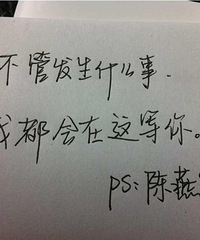 不管发生什么事.
我都会在这等你。
ps:陈燕